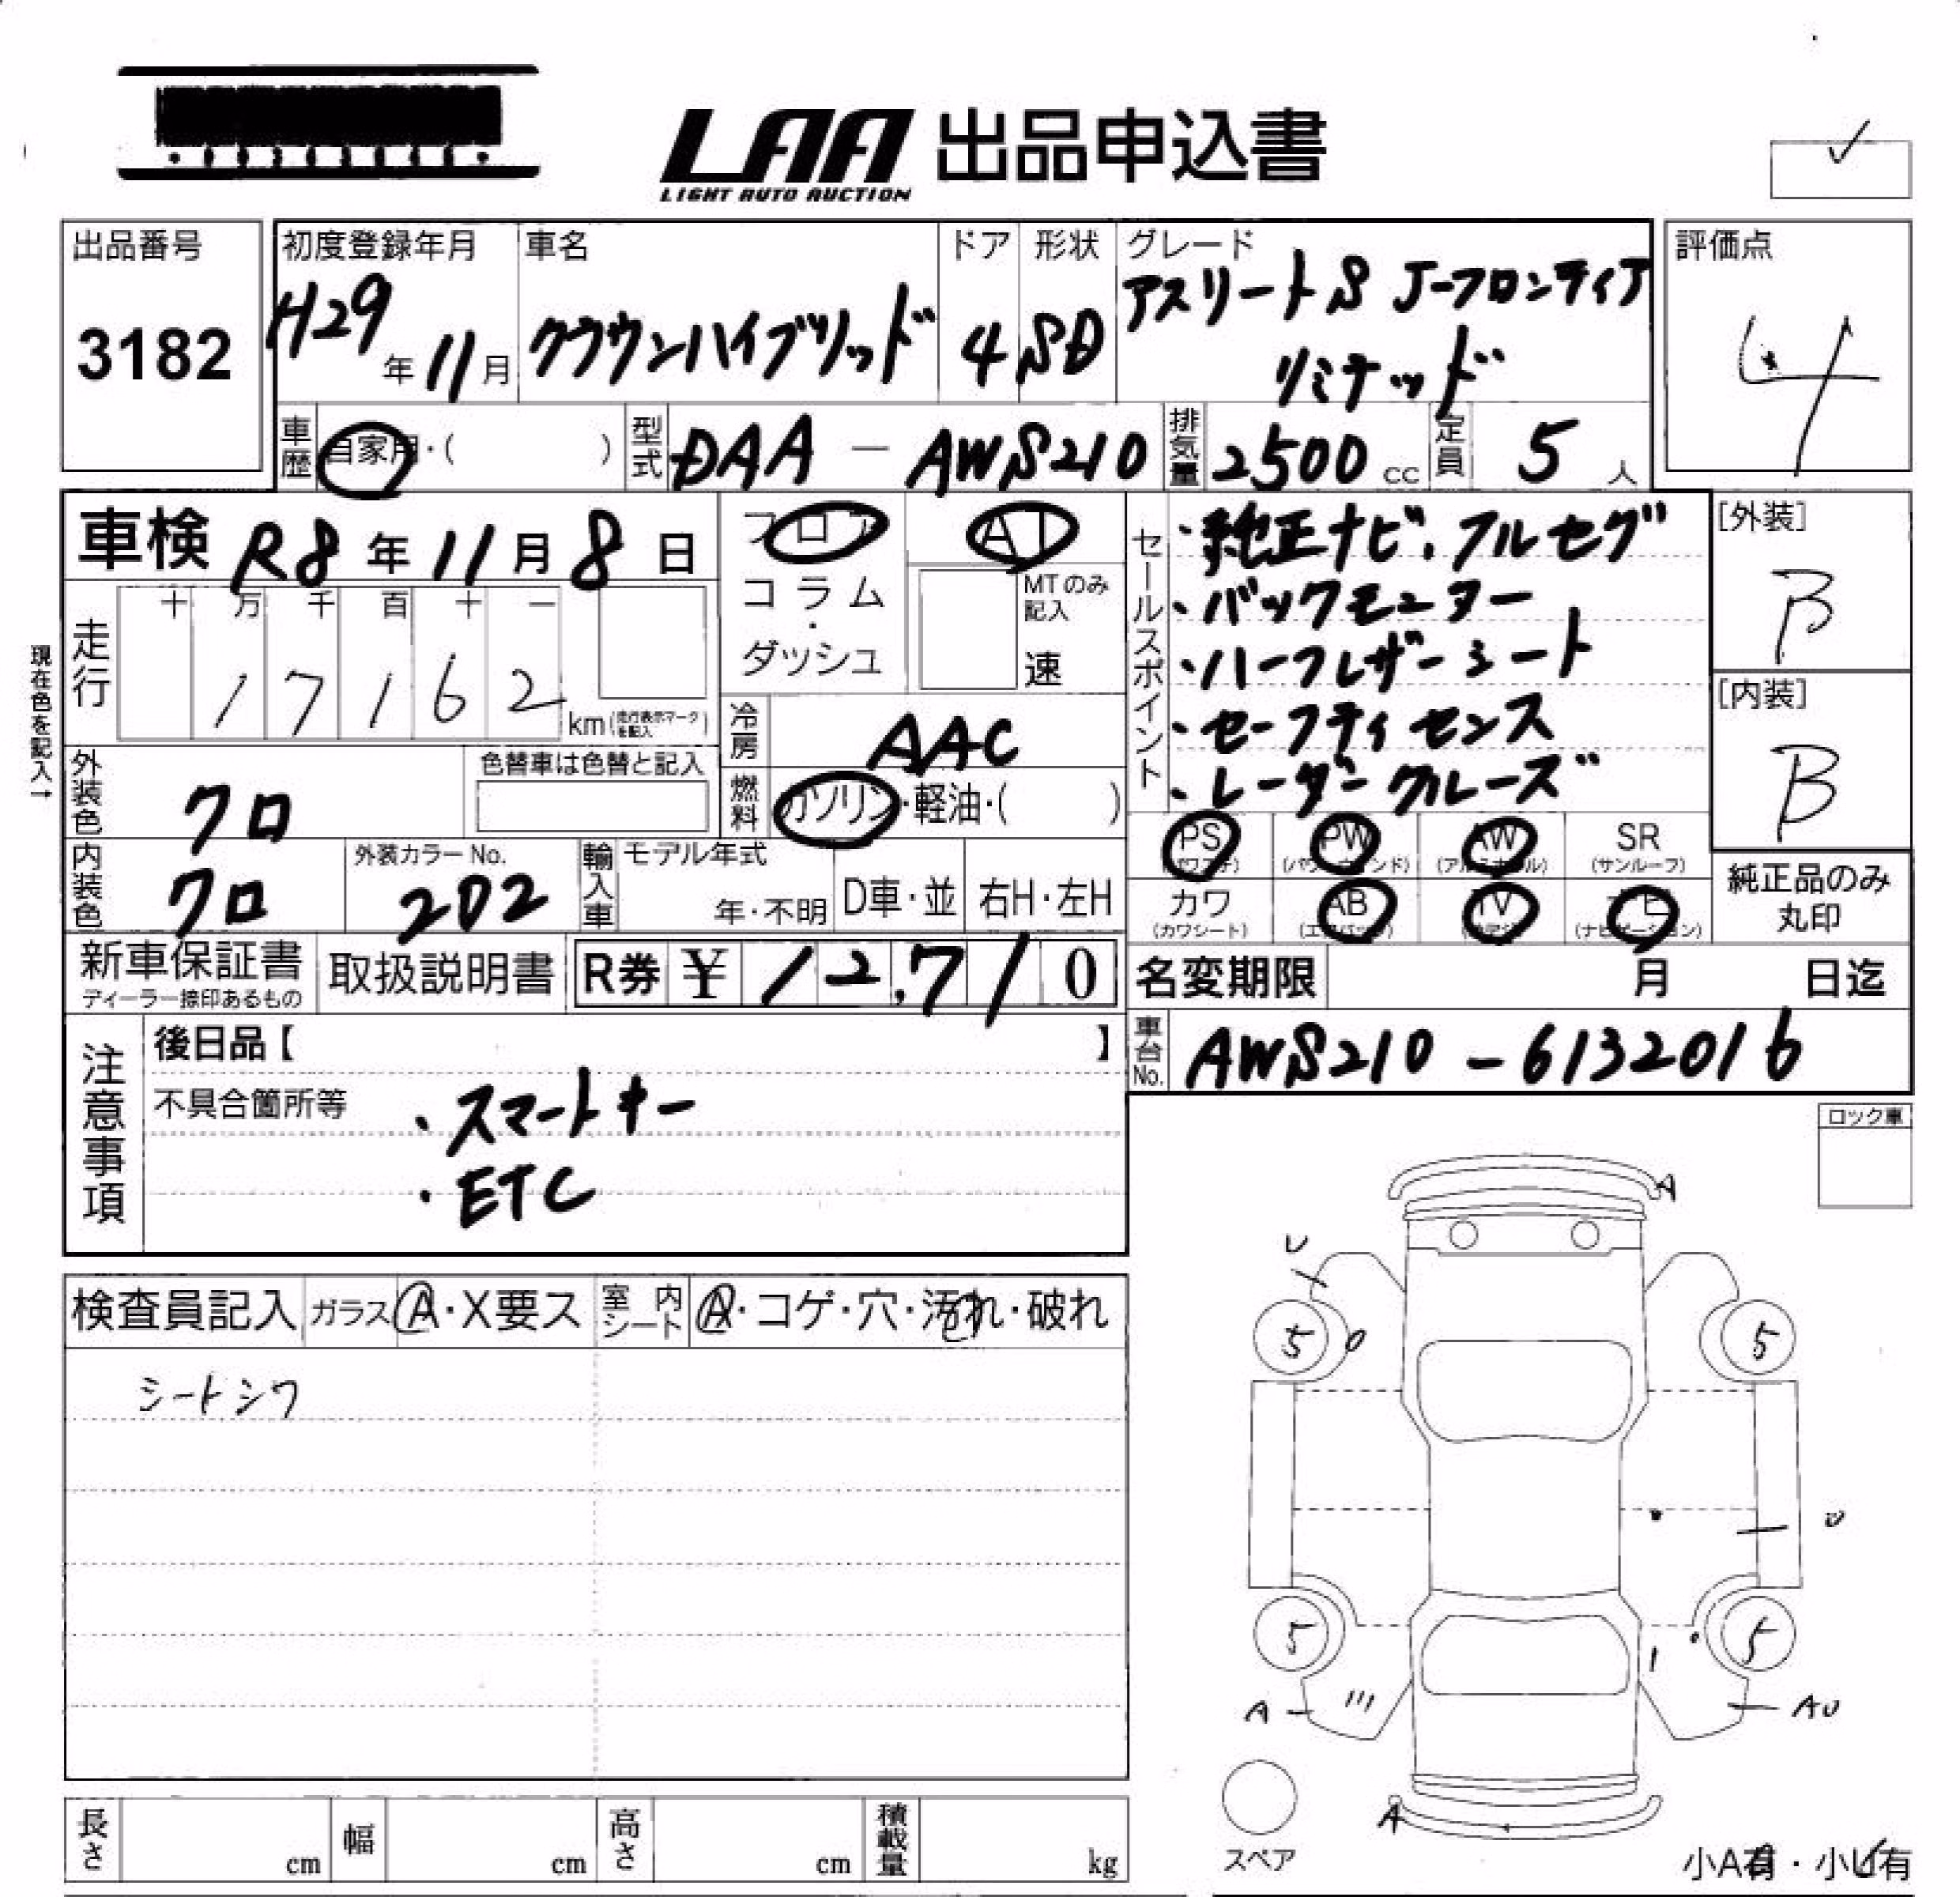 LAA 出品申込書
LIGHT AUTO AUCTION
出品番号
3182
初度登録年月
H29年11月
車名
クラウンハイブリッド
ドア
4
形状
SD
グレード
アスリートS J-フロンティア
リミテッド
評価点
4
車歴
自家用・( )
型式
DAA - AWS210
排気量
2500cc
定員
5人
車検 R8年11月8日
フロア
コラム
・
ダッシュ
AT
MTのみ
記入
速
セールスポイント
・純正ナビ、フルセグ
・バックモニター
・ハーフレザーシート
・セーフティセンス
・レーダークルーズ
[外装]
B
[内装]
B
現在色を記入→
走行
十 万 千 百 十 一
17162
km(走行表示マークを記入)
冷房
AAC
燃料
ガソリン・軽油・( )
外装色
クロ
色替車は色替と記入
内装色
クロ
外装カラーNo.
202
輸入車
モデル年式
年・不明
D車・並
右H・左H
PS
(パワステ)
PW
(パワーウィンド)
AW
(アルミホイル)
SR
(サンルーフ)
カワ
(カワシート)
AB
(エアバッグ)
TV
ナビ
(ナビゲーション)
純正品のみ
丸印
新車保証書
ディーラー捺印あるもの
取扱説明書
R券 ¥12,710
名変期限 月 日迄
車台No.
AWS210-6132016
注意事項
後日品【 】
不具合箇所等
・スマートキー
・ETC
ロック車
検査員記入
ガラス A・X要ス
室内シート A・コゲ・穴・汚れ・破れ
シートシワ
A
U
5
5
5
5
A
AU
A
スペア
小A有・小U有
長さ cm
幅 cm
高さ cm
積載量 kg